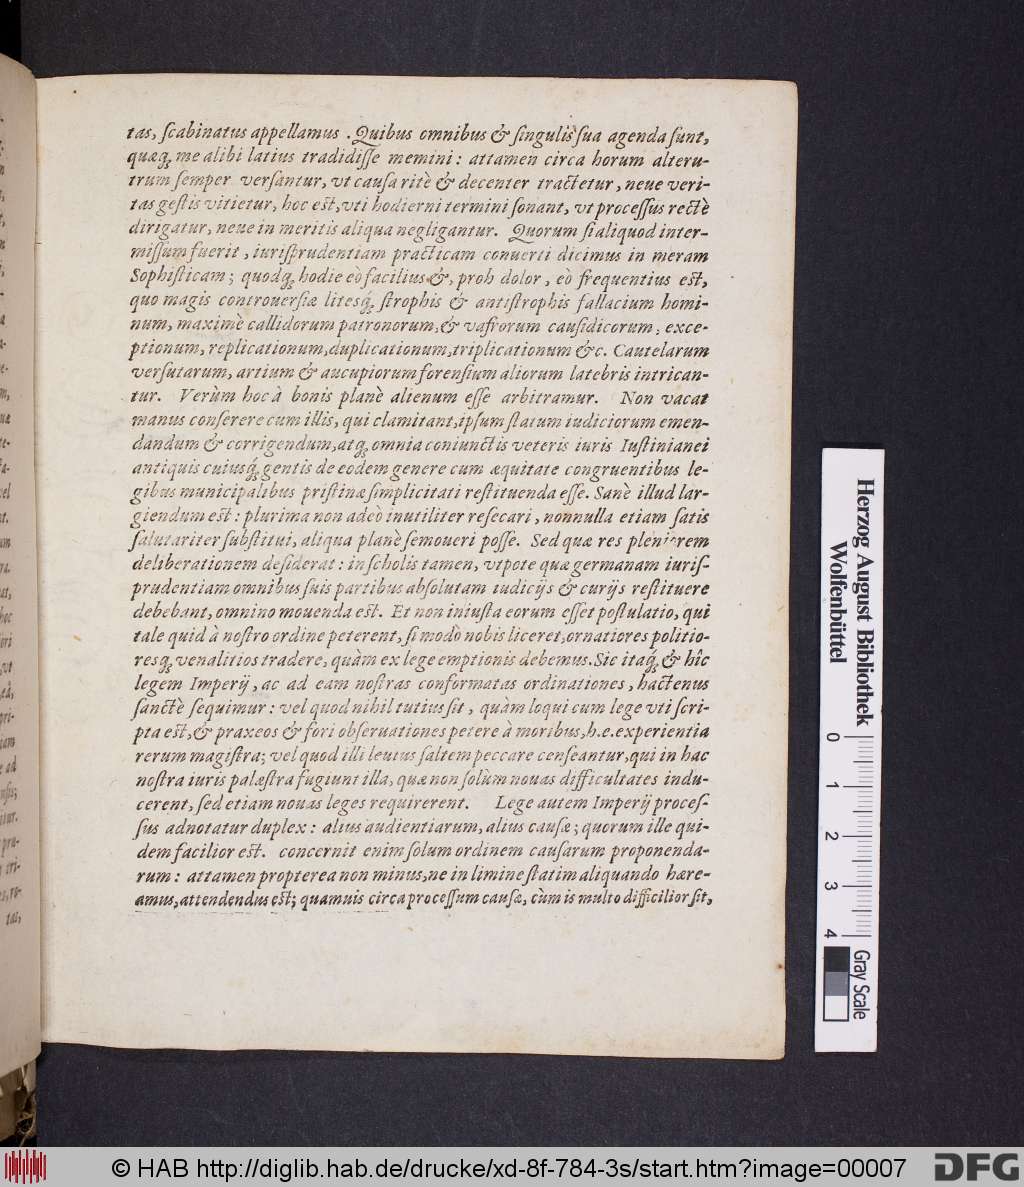 tas, ſcabinatus appellamus . Quibus omnibus & ſingulis ſua agenda ſunt,
quæq́; me alibi latius tradidiſſe memini : attamen circa horum alteru-
trum ſemper verſantur, vt cauſa ritè & decenter tractetur, neue veri-
tas geſtis vitietur, hoc eſt, vti hodierni termini ſonant, vt proceſſus rectè
dirigatur, neue in meritis aliqua negligantur. Quorum ſi aliquod inter-
miſſum fuerit , iuriſprudentiam practicam conuerti dicimus in meram
Sophiſticam ; quodq́; hodie eò facilius &, proh dolor , eò frequentius eſt,
quo magis controuerſiæ litesq́; ſtrophis & antiſtrophis fallacium homi-
num, maximè callidorum patronorum, & vafrorum cauſidicorum, exce-
ptionum, replicationum, duplicationum, triplicationum &c. Cautelarum
verſutarum, artium & aucupiorum forenſium aliorum latebris intrican-
tur. Verùm hoc à bonis planè alienum eſſe arbitramur. Non vacat
manus conſerere cum illis, qui clamitant, ipſum ſtatum iudiciorum emen-
dandum & corrigendum, atq́; omnia coniunctis veteris iuris Iuſtinianei
antiquis cuiusq́; gentis de eodem genere cum æquitate congruentibus le-
gibus municipalibus priſtinæ ſimplicitati reſtituenda eſſe. Sanè illud lar-
giendum eſt : plurima non adeò inutiliter reſecari , nonnulla etiam ſatis
ſalutariter ſubſtitui, aliqua planè ſemoueri poſſe. Sed quæ res pleniorem
deliberationem deſiderat : in ſcholis tamen, vtpote quæ germanam iuriſ-
prudentiam omnibus ſuis partibus abſolutam iudicijs & curijs reſtituere
debebant, omnino mouenda eſt. Et non iniuſta eorum eſſet poſtulatio, qui
tale quid à noſtro ordine peterent, ſi modò nobis liceret, ornatiores politio-
resq́; venalitios tradere, quàm ex lege emptionis debemus. Sic itaq́; & hîc
legem Imperij , ac ad eam noſtras conformatas ordinationes , hactenus
ſanctè ſequimur : vel quod nihil tutius ſit , quàm loqui cum lege vti ſcri-
pta eſt, & praxeos & fori obſeruationes petere à moribus, h. e. experientia
rerum magiſtra; vel quod illi leuius ſaltem peccare cenſeantur, qui in hac
noſtra iuris palæſtra fugiunt illa, quæ non ſolùm nouas difficultates indu-
cerent, ſed etiam nouas leges requirerent. Lege autem Imperij proceſ-
ſus adnotatur duplex : alius audientiarum, alius cauſæ ; quorum ille qui-
dem facilior eſt. concernit enim ſolum ordinem cauſarum proponenda-
rum : attamen propterea non minus, ne in limine ſtatim aliquando hære-
amus, attendendus eſt; quamuis circa proceſſum cauſæ, cùm is multo difficilior ſit,
Herzog August Bibliothek
Wolfenbüttel
0 1 2 3 4
Gray Scale
© HAB http://diglib.hab.de/drucke/xd-8f-784-3s/start.htm?image=00007
DFG